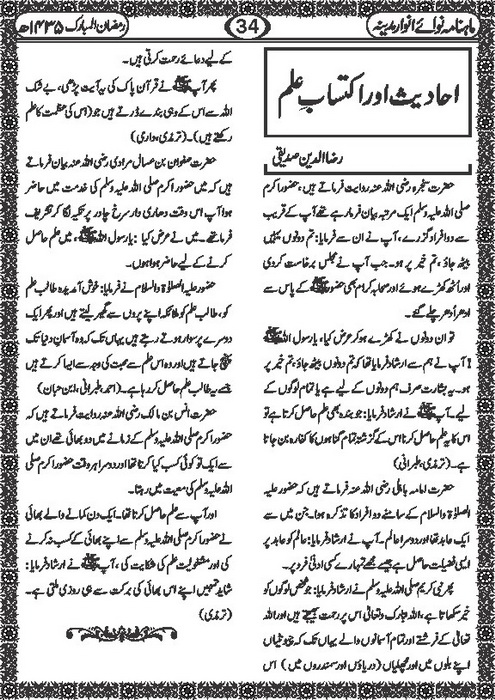 ماہنامہ نوائے انوار مدینہ
34
رمضان المبارک ۱۴۳۵ھ
احادیث اور اکتساب علم
رضاالدین صدیقی
حضرت سنجرہ رضی اللہ عنہ روایت فرماتے ہیں، حضور اکرم
صلی اللہ علیہ وسلم ایک مرتبہ بیان فرما رہے تھے آپ کے قریب
سے دو افراد گزرے، آپ نے ان سے فرمایا: تم دونوں یہیں
بیٹھ جاؤ، تم خیر پر ہو۔ جب آپ نے مجلس برخاست کردی
اور اٹھ کھڑے ہوئے اور صحابہ کرام بھی حضور ﷺ کے پاس سے
ادھر اُدھر چلے گئے۔
تو ان دونوں نے کھڑے ہو کر عرض کیا، یارسول اللہ ﷺ
! آپ نے ہم سے ارشاد فرمایا تھا کہ تم دونوں بیٹھ جاؤ، تم خیر پر
ہو۔ یہ بشارت صرف ہم دونوں کے لیے ہے یا تمام لوگوں کے
لیے۔ آپ ﷺ نے ارشاد فرمایا: جو بندہ بھی علم حاصل کرتا ہے تو
اس کا یہ علم حاصل کرنا اس کے گزشتہ تمام گناہوں کا کفارہ بن جاتا
ہے۔ (ترمذی، طبرانی)
حضرت امامہ باہلی رضی اللہ عنہ فرماتے ہیں کہ حضور علیہ
الصلوٰۃ والسلام کے سامنے دو افراد کا تذکرہ ہوا۔ جن میں سے
ایک عابد تھا اور دوسرا عالم۔ آپ نے ارشاد فرمایا: عالم کو عابد پر
ایسی فضیلت حاصل ہے جیسے مجھے تمہارے کسی ادنیٰ فرد پر۔
پھر نبی کریم صلی اللہ علیہ وسلم نے ارشاد فرمایا: جو شخص لوگوں کو
خیر سکھاتا ہے، اللہ تبارک وتعالیٰ اس پر رحمت بھیجتے ہیں اور اللہ
تعالیٰ کے فرشتے اور تمام آسمانوں والے یہاں تک کہ چیونٹیاں
اپنے بلوں میں اور مچھلیاں (دریاؤں اور سمندروں میں) اس
کے لیے دعائے رحمت کرتی ہیں۔
پھر آپ ﷺ نے قرآن پاک کی یہ آیت پڑھی، بے شک
اللہ سے اس کے وہی بندے ڈرتے ہیں جو (اس کی عظمت کا علم
رکھتے ہیں)۔ (ترمذی، دارمی)
حضرت صفوان بن عسال مرادی رضی اللہ عنہ بیان فرماتے
ہیں کہ میں حضور اکرم صلی اللہ علیہ وسلم کی خدمت میں حاضر
ہوا آپ اس وقت دھاری دار سرخ چادر پر تکیہ لگا کر تشریف
فرما تھے۔ میں نے عرض کیا: یارسول اللہ ﷺ، میں علم حاصل
کرنے کے لیے حاضر ہوا ہوں۔
علیہ الصلوٰۃ والسلام نے فرمایا: خوش آمدید ہ طالب علم
کو، طالب علم کو ملائکہ اپنے پروں سے گھیر لیتے ہیں اور پھر ایک
دوسرے پر سوار ہوتے رہتے ہیں یہاں تک کہ وہ آسمان دنیا تک
پہنچ جاتے ہیں اور وہ اس علم سے محبت کی وجہ سے ایسا کرتے ہیں
جسے یہ طالب علم حاصل کر رہا ہے۔ (احمد، طبرانی، ابن حبان)
حضرت انس بن مالک رضی اللہ عنہ روایت فرماتے ہیں کہ
حضور اکرم صلی اللہ علیہ وسلم کے زمانے میں دو بھائی تھے ان میں
سے ایک تو کوئی کسب کیا کرتا تھا اور دوسرا ہر وقت حضور اکرم صلی
اللہ علیہ وسلم کی معیت میں رہتا۔
اور آپ سے علم حاصل کرتا تھا۔ ایک دن کمانے والے بھائی
نے حضور اکرم صلی اللہ علیہ وسلم سے اپنے بھائی کے کسب نہ کرنے
کی اور مشغولیت علم کی شکایت کی، آپ ﷺ نے ارشاد فرمایا:
شاید تمہیں اپنے اس بھائی کی برکت سے ہی روزی ملتی ہے۔
(ترمذی)